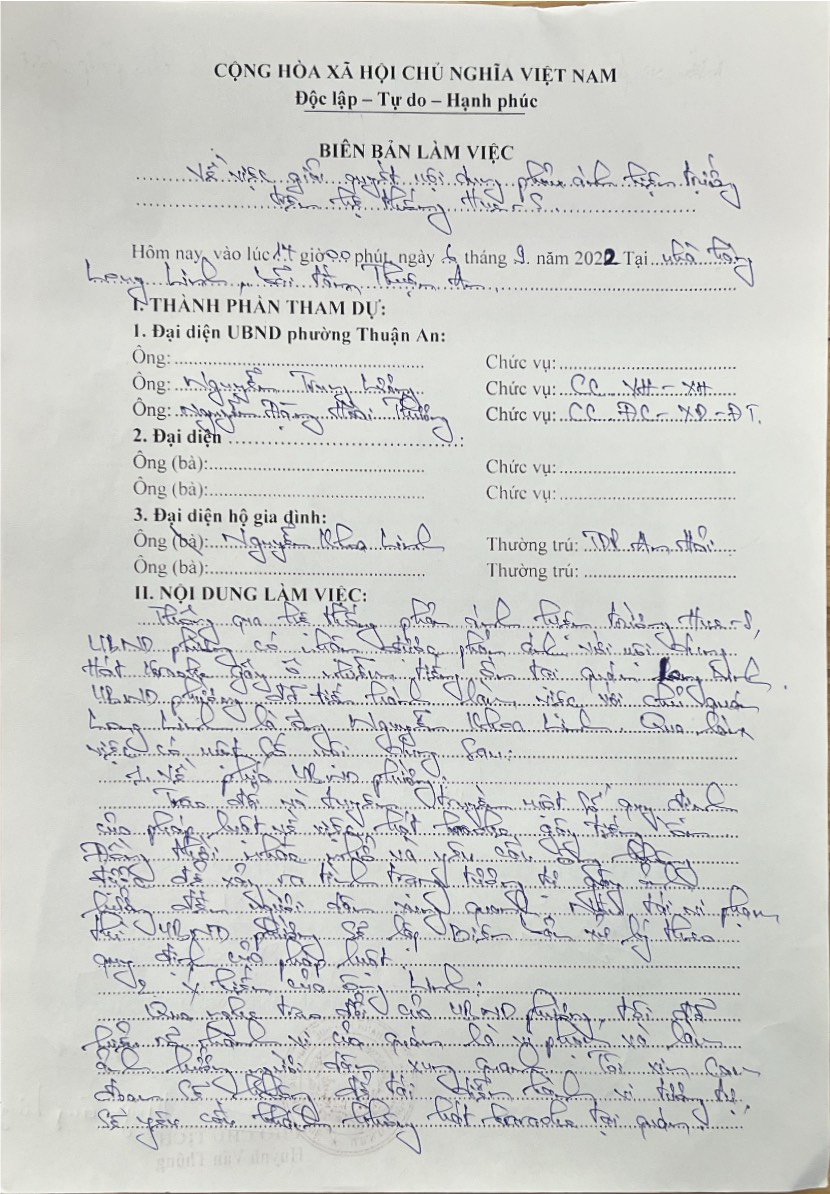 CỘNG HÒA XÃ HỘI CHỦ NGHĨA VIỆT NAM
Độc lập – Tự do – Hạnh phúc
BIÊN BẢN LÀM VIỆC
Về việc giải quyết nội dung phản ánh hiện trường
trên hệ thống Hue-S
Hôm nay, vào lúc 17 giờ 00 phút, ngày 6 tháng 9 năm 2022 Tại nhà hàng
Long Linh, Thuận An
I. THÀNH PHẦN THAM DỰ:
1. Đại diện UBND phường Thuận An:
Ông: Chức vụ:
Ông: Nguyễn Trung Chức vụ: CC VH - XH
Ông: Nguyễn Đặng Hoài Chức vụ: CC ĐC - XD - ĐT.
2. Đại diện :
Ông (bà): Chức vụ:
Ông (bà): Chức vụ:
3. Đại diện hộ gia đình:
Ông (bà): Nguyễn Khoa Linh Thường trú: TDP An Hải
Ông (bà): Thường trú:
II. NỘI DUNG LÀM VIỆC:
Thông qua hệ thống phản ánh hiện trường Hue-S,
UBND phường có nhận được phản ánh với nội dung
Hát karaoke gây ô nhiễm tiếng ồn tại quán Long Linh.
UBND phường đã tiến hành làm việc với chủ quán
Long Linh là ông Nguyễn Khoa Linh. Qua làm
việc có một số nội dung sau:
1. Về phía UBND phường:
Trao đổi và tuyên truyền một số quy định
của pháp luật về việc hát karaoke gây tiếng ồn
Đồng thời nhắc nhở và yêu cầu ông không
được để xảy ra tình trạng tương tự gây ảnh
hưởng đến người dân xung quanh. Nếu tái vi phạm
thì UBND phường sẽ lập Biên bản xử lý theo
quy định của pháp luật.
2. Ý kiến của ông Linh:
Qua nghe trao đổi của UBND phường, tôi đã
hiểu về hành vi của quán là vi phạm và làm
ảnh hưởng người dân xung quanh. Tôi xin cam
đoan sẽ không để tái diễn hành vi tương tự.
Sẽ yêu cầu khách không hát karaoke tại quán.
Huỳnh Văn Thông